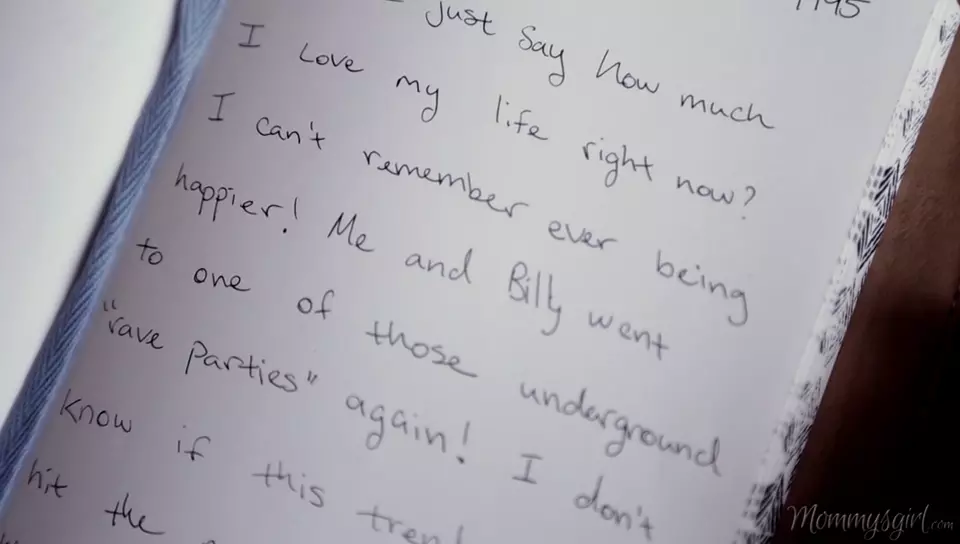 1995
just say how much
I love my life right now?
I can't remember ever being
happier! Me and Billy went
to one of those underground
"rave parties" again! I don't
know if this trend
hit the
Mommysgirl.com